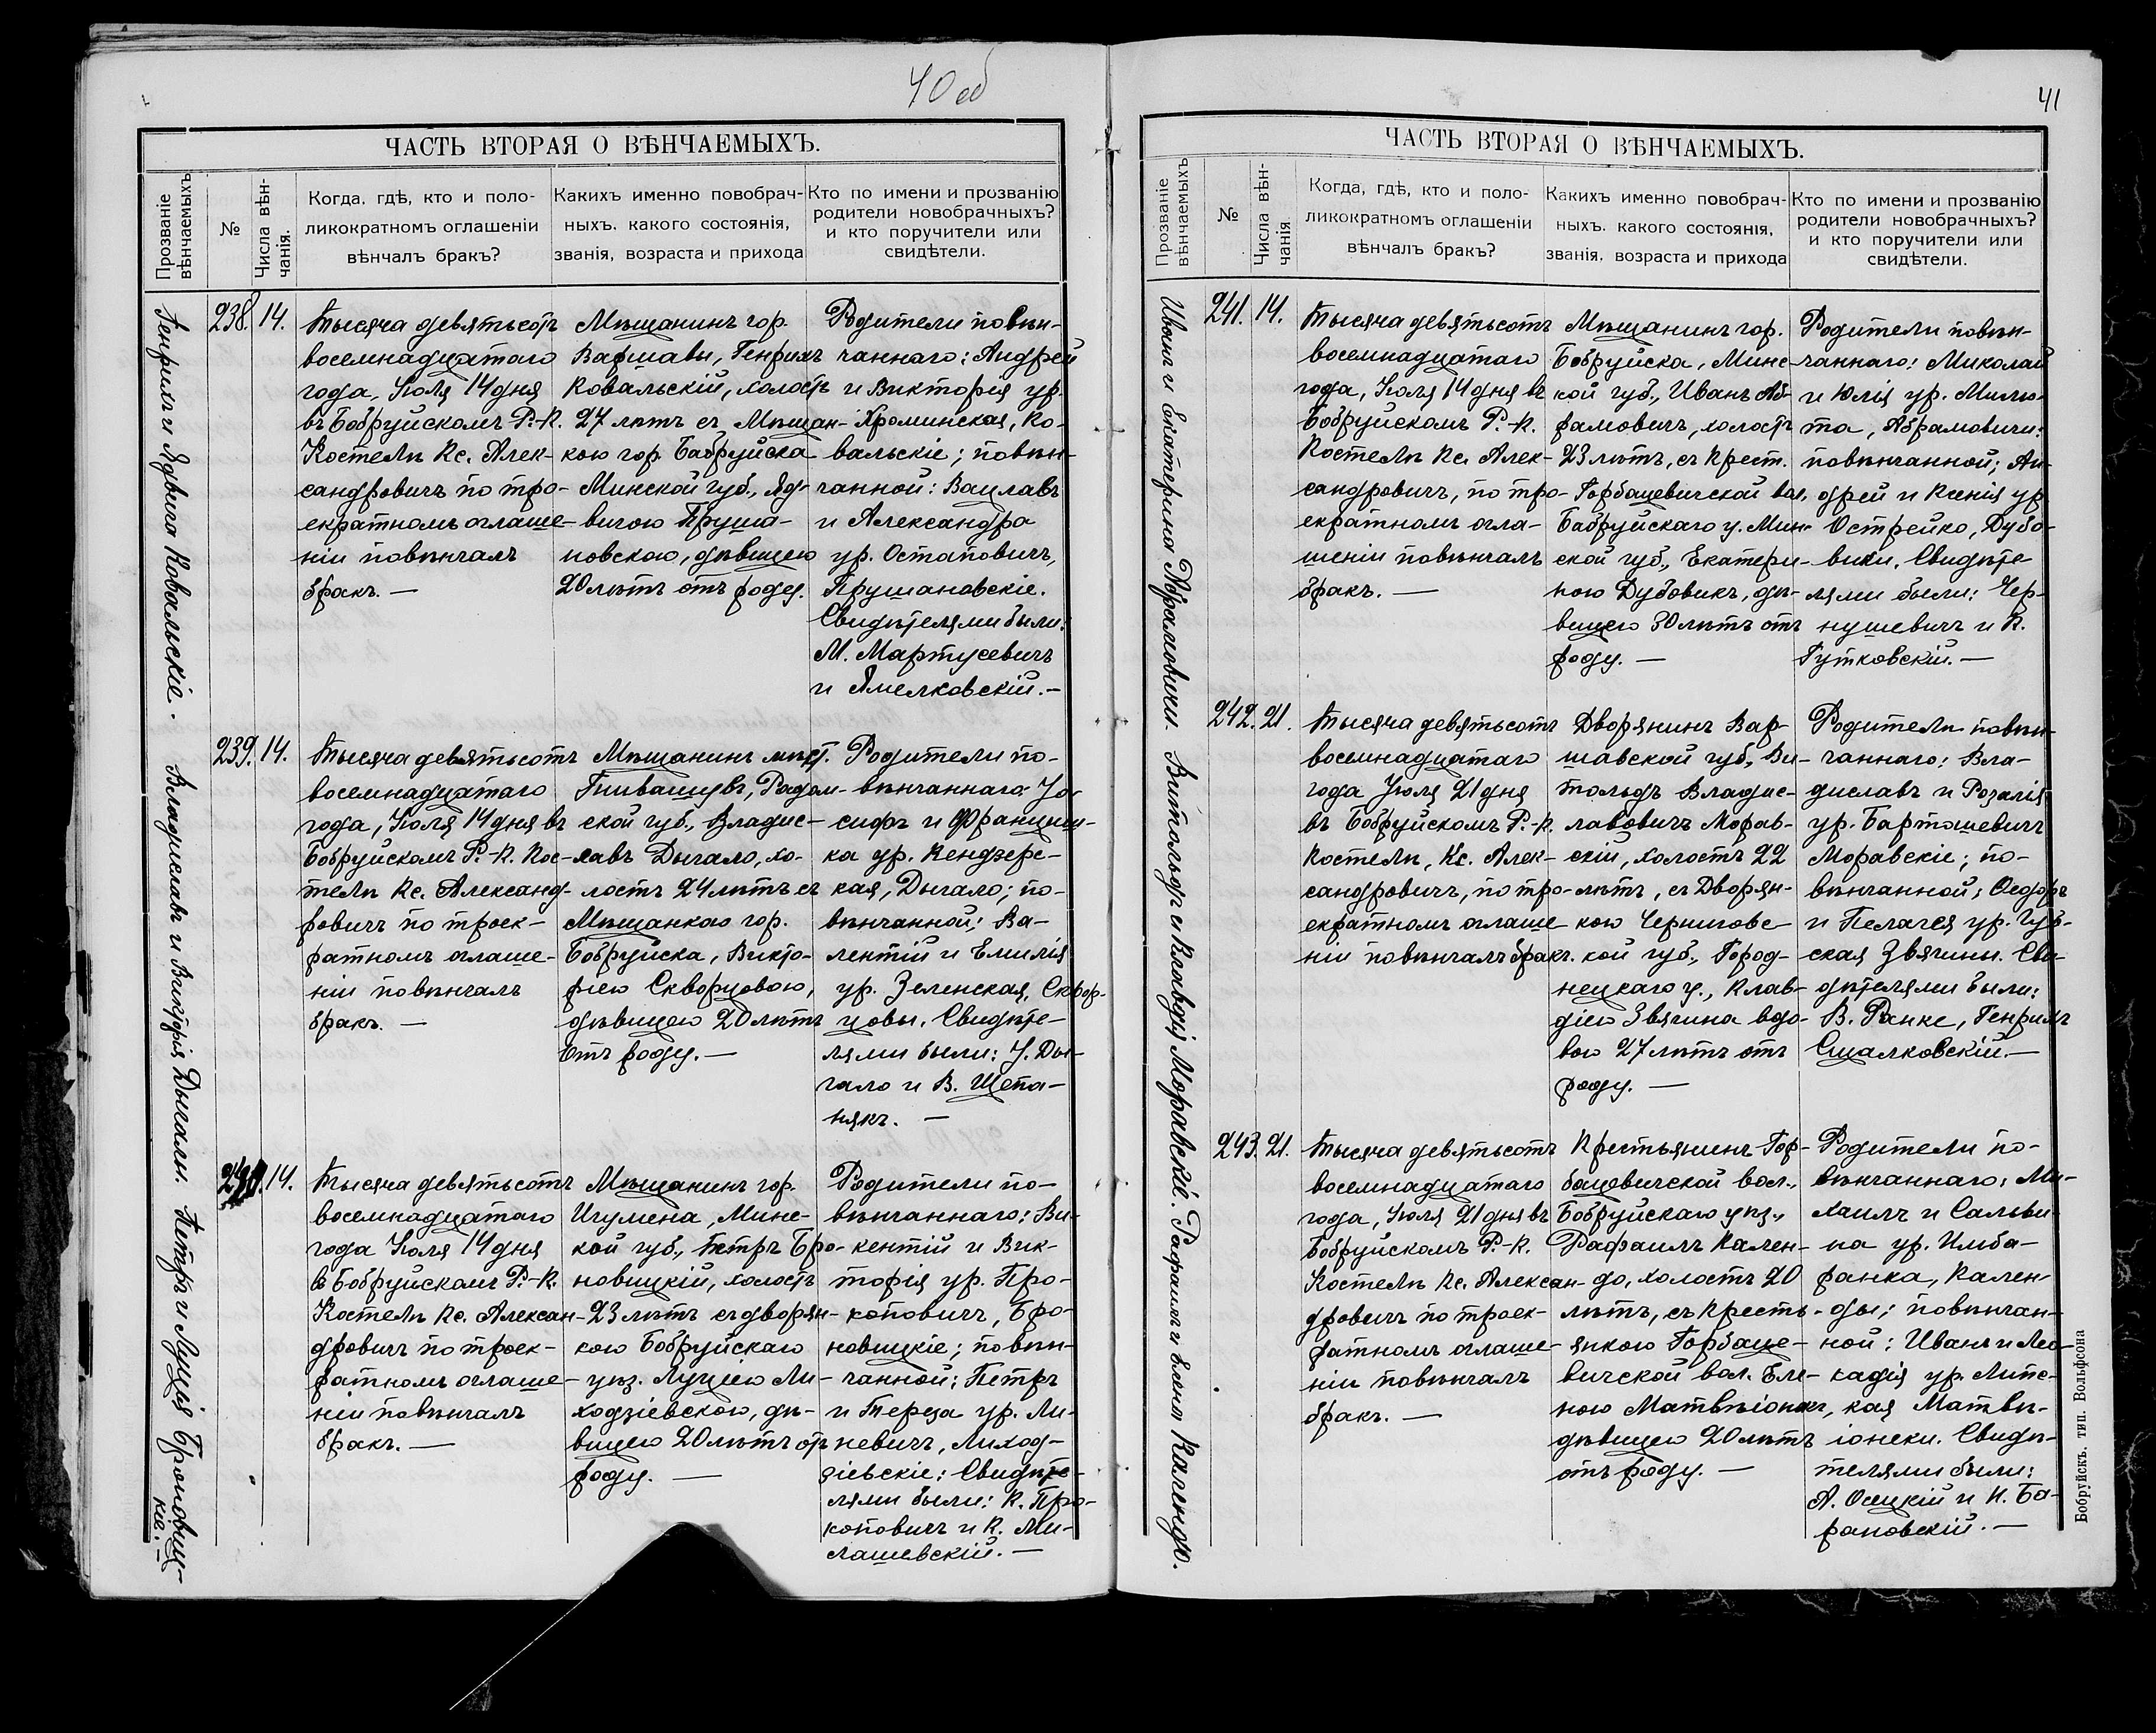 40 об
ЧАСТЬ ВТОРАЯ О ВѢНЧАЕМЫХЪ.
Прозваніе
вѣнчаемыхъ
№
Числа вѣн-
чанія.
Когда, гдѣ, кто и поло-
ликократномъ оглашеніи
вѣнчалъ бракъ?
Какихъ именно повобрач-
ныхъ. какого состоянія,
званія, возраста и прихода
Кто по имени и прозванію
родители новобрачныхъ?
и кто поручители или
свидѣтели.
Генрихъ и Ядвига Ковальскіе.
238. 14.
Тысяча девятьсотъ
восемнадцатаго
года, Іюля 14 дня
въ Бобруйскомъ Р.-К.
Костелѣ Кс. Алек-
сандровичъ по тро-
екратномъ оглаше-
ніи повѣнчалъ
бракъ. —
Мѣщанинъ гор.
Варшавы, Генрихъ
Ковальскій, холостъ
27 лѣтъ съ Мѣщан-
кою гор. Бобруйска
Минской губ., Яд-
вигою Пруша-
новскою, дѣвицею
20 лѣтъ отъ роду.
Родители повѣн-
чаннаго: Андрей
и Викторія ур.
Хроминская, Ко-
вальскіе; повѣн-
чанной: Вацлавъ
и Александра
ур. Остаповичъ,
Прушановскіе.
Свидѣтелями были:
М. Мартусевичъ
и Ямелковскій. —
Владиславъ и Викторія Дыгалы.
239. 14.
Тысяча девятьсотъ
восемнадцатаго
года, Іюля 14 дня въ
Бобруйскомъ Р.-К. Кос-
телѣ Кс. Александ-
ровичъ по троек-
ратномъ оглаше-
ніи повѣнчалъ
бракъ. —
Мѣщанинъ мѣст.
Гнивашувъ, Радом-
ской губ., Владис-
лавъ Дыгало, хо-
лостъ 24 лѣтъ съ
Мѣщанкою гор.
Бобруйска, Викто-
ріею Скворцовою,
дѣвицею 20 лѣтъ
отъ роду. —
Родители по-
вѣнчаннаго: Іо-
сифъ и Францишка
ка ур. Кендзерс-
кая, Дыгало; по-
вѣнчанной: Ва-
лентій и Емилія
ур. Зеленская, Сквор-
цовы. Свидѣте-
лями были: І. Ды-
гало и В. Щепа-
някъ. —
Петръ и Луція Броновиц-
кіе. —
240. 14.
Тысяча девятьсотъ
восемнадцатаго
года Іюля 14 дня
въ Бобруйскомъ Р.-К.
Костелѣ Кс. Алексан-
дровичъ по троек-
ратномъ оглаше-
ніи повѣнчалъ
бракъ. —
Мѣщанинъ гор.
Игумена, Минс-
кой губ., Петръ Бро-
новицкій, холостъ
23 лѣтъ съ дворян-
кою Бобруйскаго
уѣз. Луціею Ли-
ходзіевскою, дѣ-
вицею 20 лѣтъ отъ
роду. —
Родители по-
вѣнчаннаго: Ви-
кентій и Вик-
торія ур. Про-
коповичъ, Бро-
новицкіе; повѣн-
чанной: Петръ
и Тереза ур. Ли-
невичъ, Лиход-
зіевскіе: Свидѣте-
лями были: К. Про-
коповичъ и К. Ми-
лашевскій. —
41
ЧАСТЬ ВТОРАЯ О ВѢНЧАЕМЫХЪ.
Прозваніе
вѣнчаемыхъ
№
Числа вѣн-
чанія.
Когда, гдѣ, кто и поло-
ликократномъ оглашеніи
вѣнчалъ бракъ?
Какихъ именно повобрач-
ныхъ. какого состоянія,
званія, возраста и прихода
Кто по имени и прозванію
родители новобрачныхъ?
и кто поручители или
свидѣтели.
Иванъ и Екатерина Абрамовичи.
241. 14.
Тысяча девятьсотъ
восемнадцатаго
года, Іюля 14 дня въ
Бобруйскомъ Р.-К.
Костелѣ Кс. Алек-
сандровичъ, по тро-
екратномъ огла-
шеніи повѣнчалъ
бракъ. —
Мѣщанинъ гор.
Бобруйска, Минс-
кой губ., Иванъ Аб-
рамовичъ, холостъ
23 лѣтъ, съ Крест.
Горбацевичской вол.
Бобруйскаго у. Мин-
ской губ., Екатери-
ною Дубовикъ, дѣ-
вицею 30 лѣтъ отъ
роду. —
Родители повѣн-
чаннаго: Миколай
и Юлія ур. Милю-
та, Абрамовичи:
повѣнчанной; Ан-
дрей и Ксенія ур.
Острейко, Дубо-
вики. Свидѣте
лями были: Чер-
нушевичъ и К.
Гутковскій. —
Витольдъ и Клавдія Моравскіе.
242. 21.
Тысяча девятьсотъ
восемнадцатаго
года Іюля 21 дня
въ Бобруйскомъ Р.-К.
Костелѣ, Кс. Алек-
сандровичъ, по тро-
екратномъ оглаше
ніи повѣнчалъ бракъ.
Дворянинъ Вар-
шавской губ., Ви-
тольдъ Владис-
лавовичъ Морав-
скій, холостъ 22
лѣтъ, съ Дворян-
кою Чернигове
кой губ., Город-
нецкаго у., Клав-
діею Звягина вдо-
вою 27 лѣтъ отъ
роду. —
Родители повѣн-
чаннаго: Вла-
диславъ и Розалія
ур. Бартошевичъ
Моравскіе; по-
вѣнчанной; Ѳедоръ
и Пелагея ур. Губ-
ская Звягины. Сви-
дѣтелями были:
В. Ранке, Генрихъ
Сцалковскій. —
Рафаилъ и Елена Календо.
243. 21.
Тысяча девятьсотъ
восемнадцатаго
года, Іюля 21 дня въ
Бобруйскомъ Р.-К.
Костелѣ Кс. Алексан-
дровичъ по троек-
ратномъ оглаше-
ніи повѣнчалъ
бракъ. —
Крестьянинъ Гор-
бацевичской вол.,
Бобруйскаго уѣз.,
Рафаилъ Кален-
до, холостъ 20
лѣтъ, съ Кресть-
янкою Горбаце-
вичской вол. Еле-
ною Матвѣіонокъ,
дѣвицею 20 лѣтъ
отъ роду. —
Родители по-
вѣнчаннаго: Ми-
хаилъ и Сальви-
на ур. Имба-
ранка, Кален-
ды; повѣнчан-
ной: Иванъ и Лео-
кадія ур. Липс-
кая Матвѣ-
іонеки. Свидѣ-
телями были:
А. Осицкій и И. Ба-
рановскій. —
Бобруйскъ. тип. Вольфсона